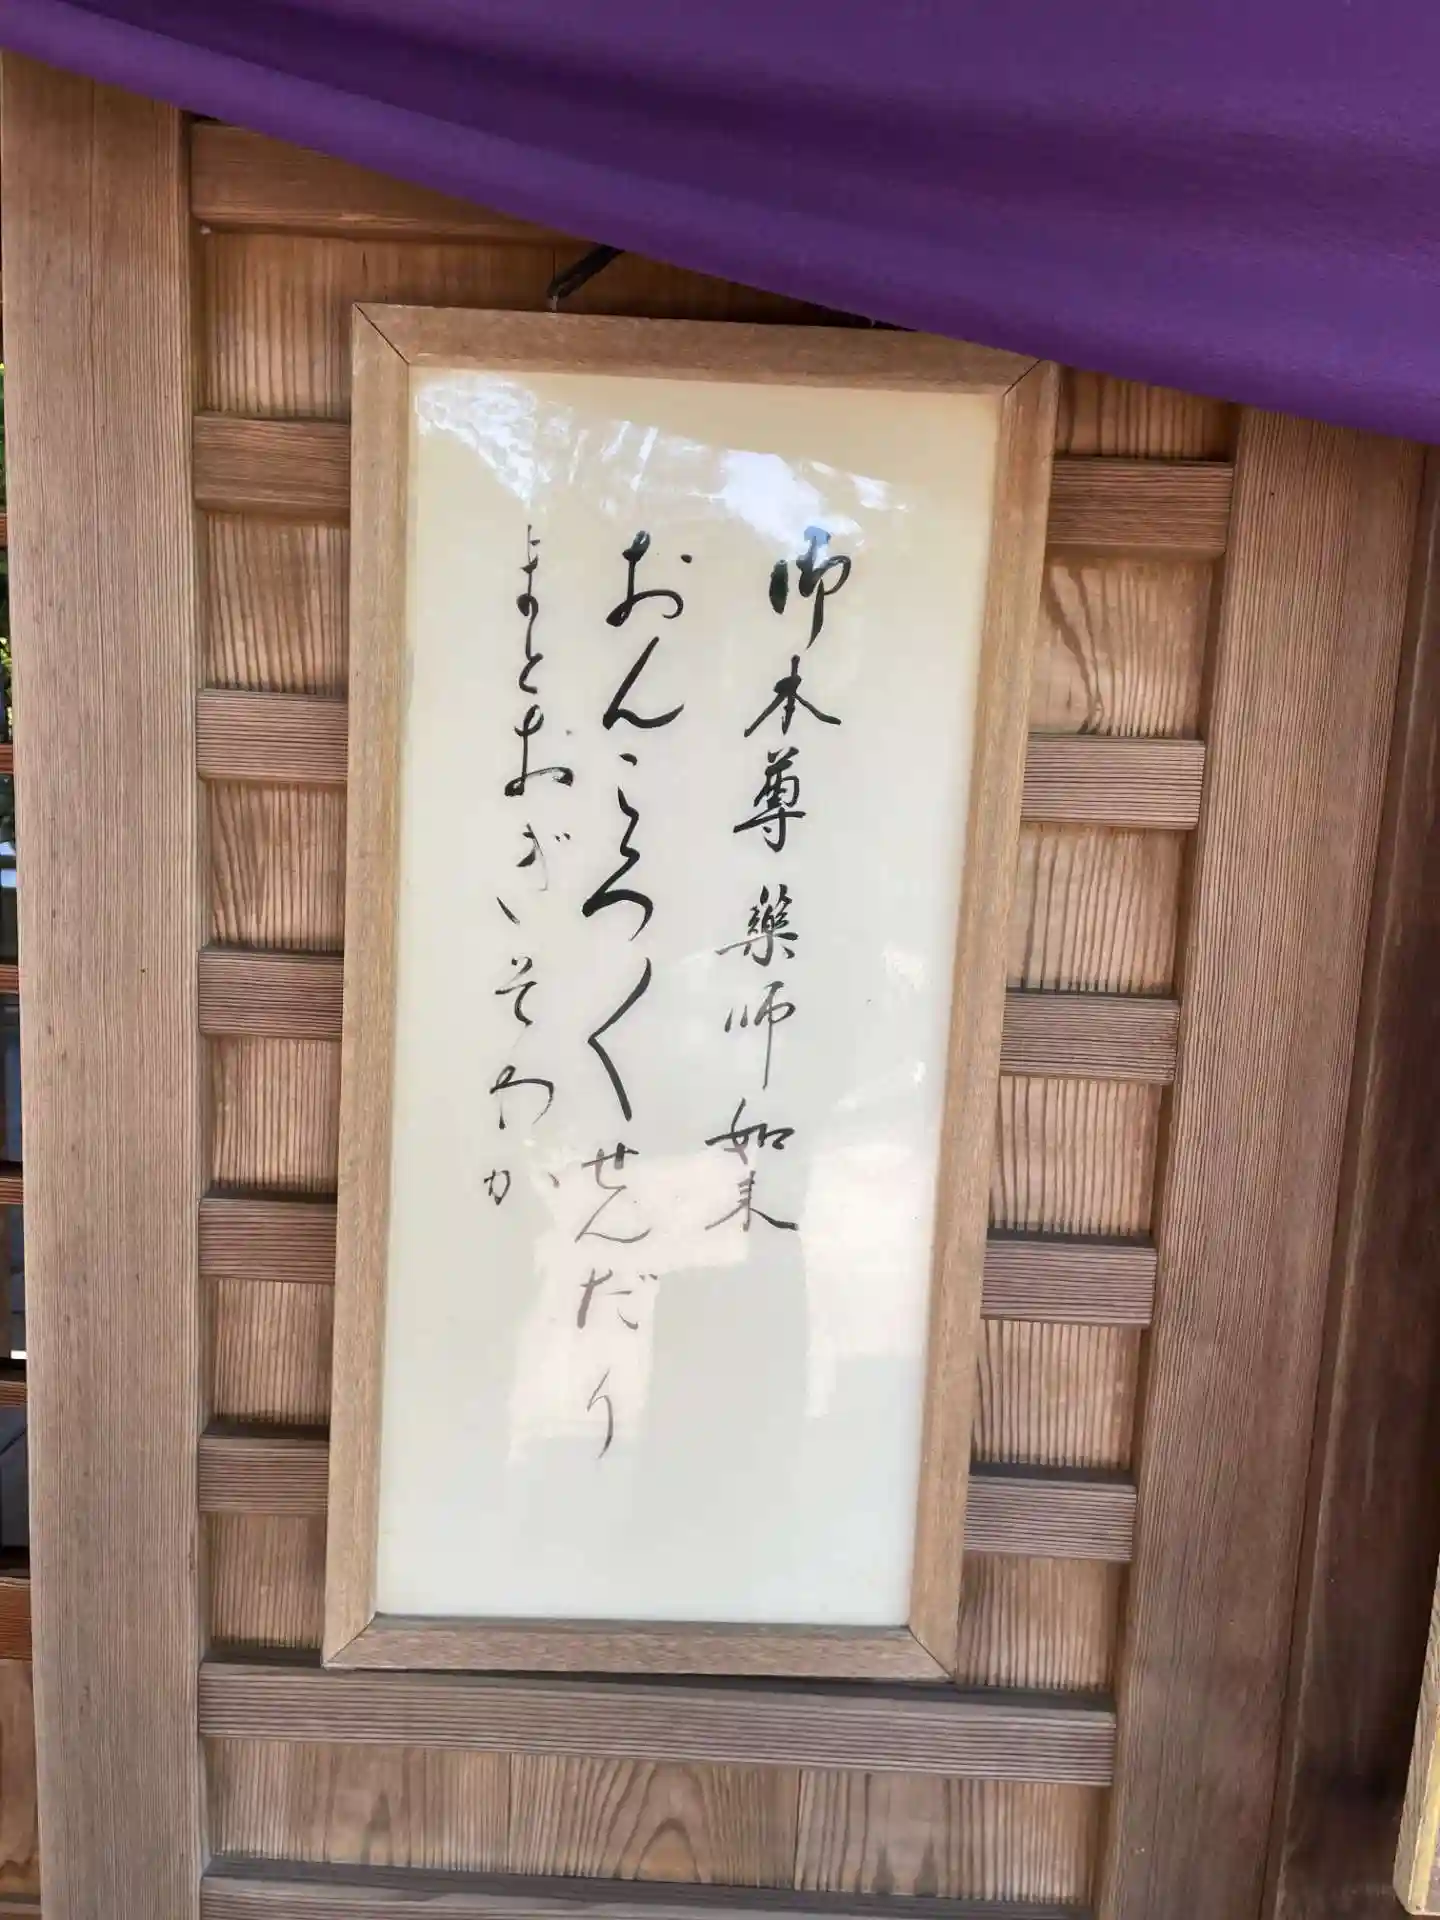 御本尊薬師如来
おんころ〳〵せんだり
まとおぎいそわか